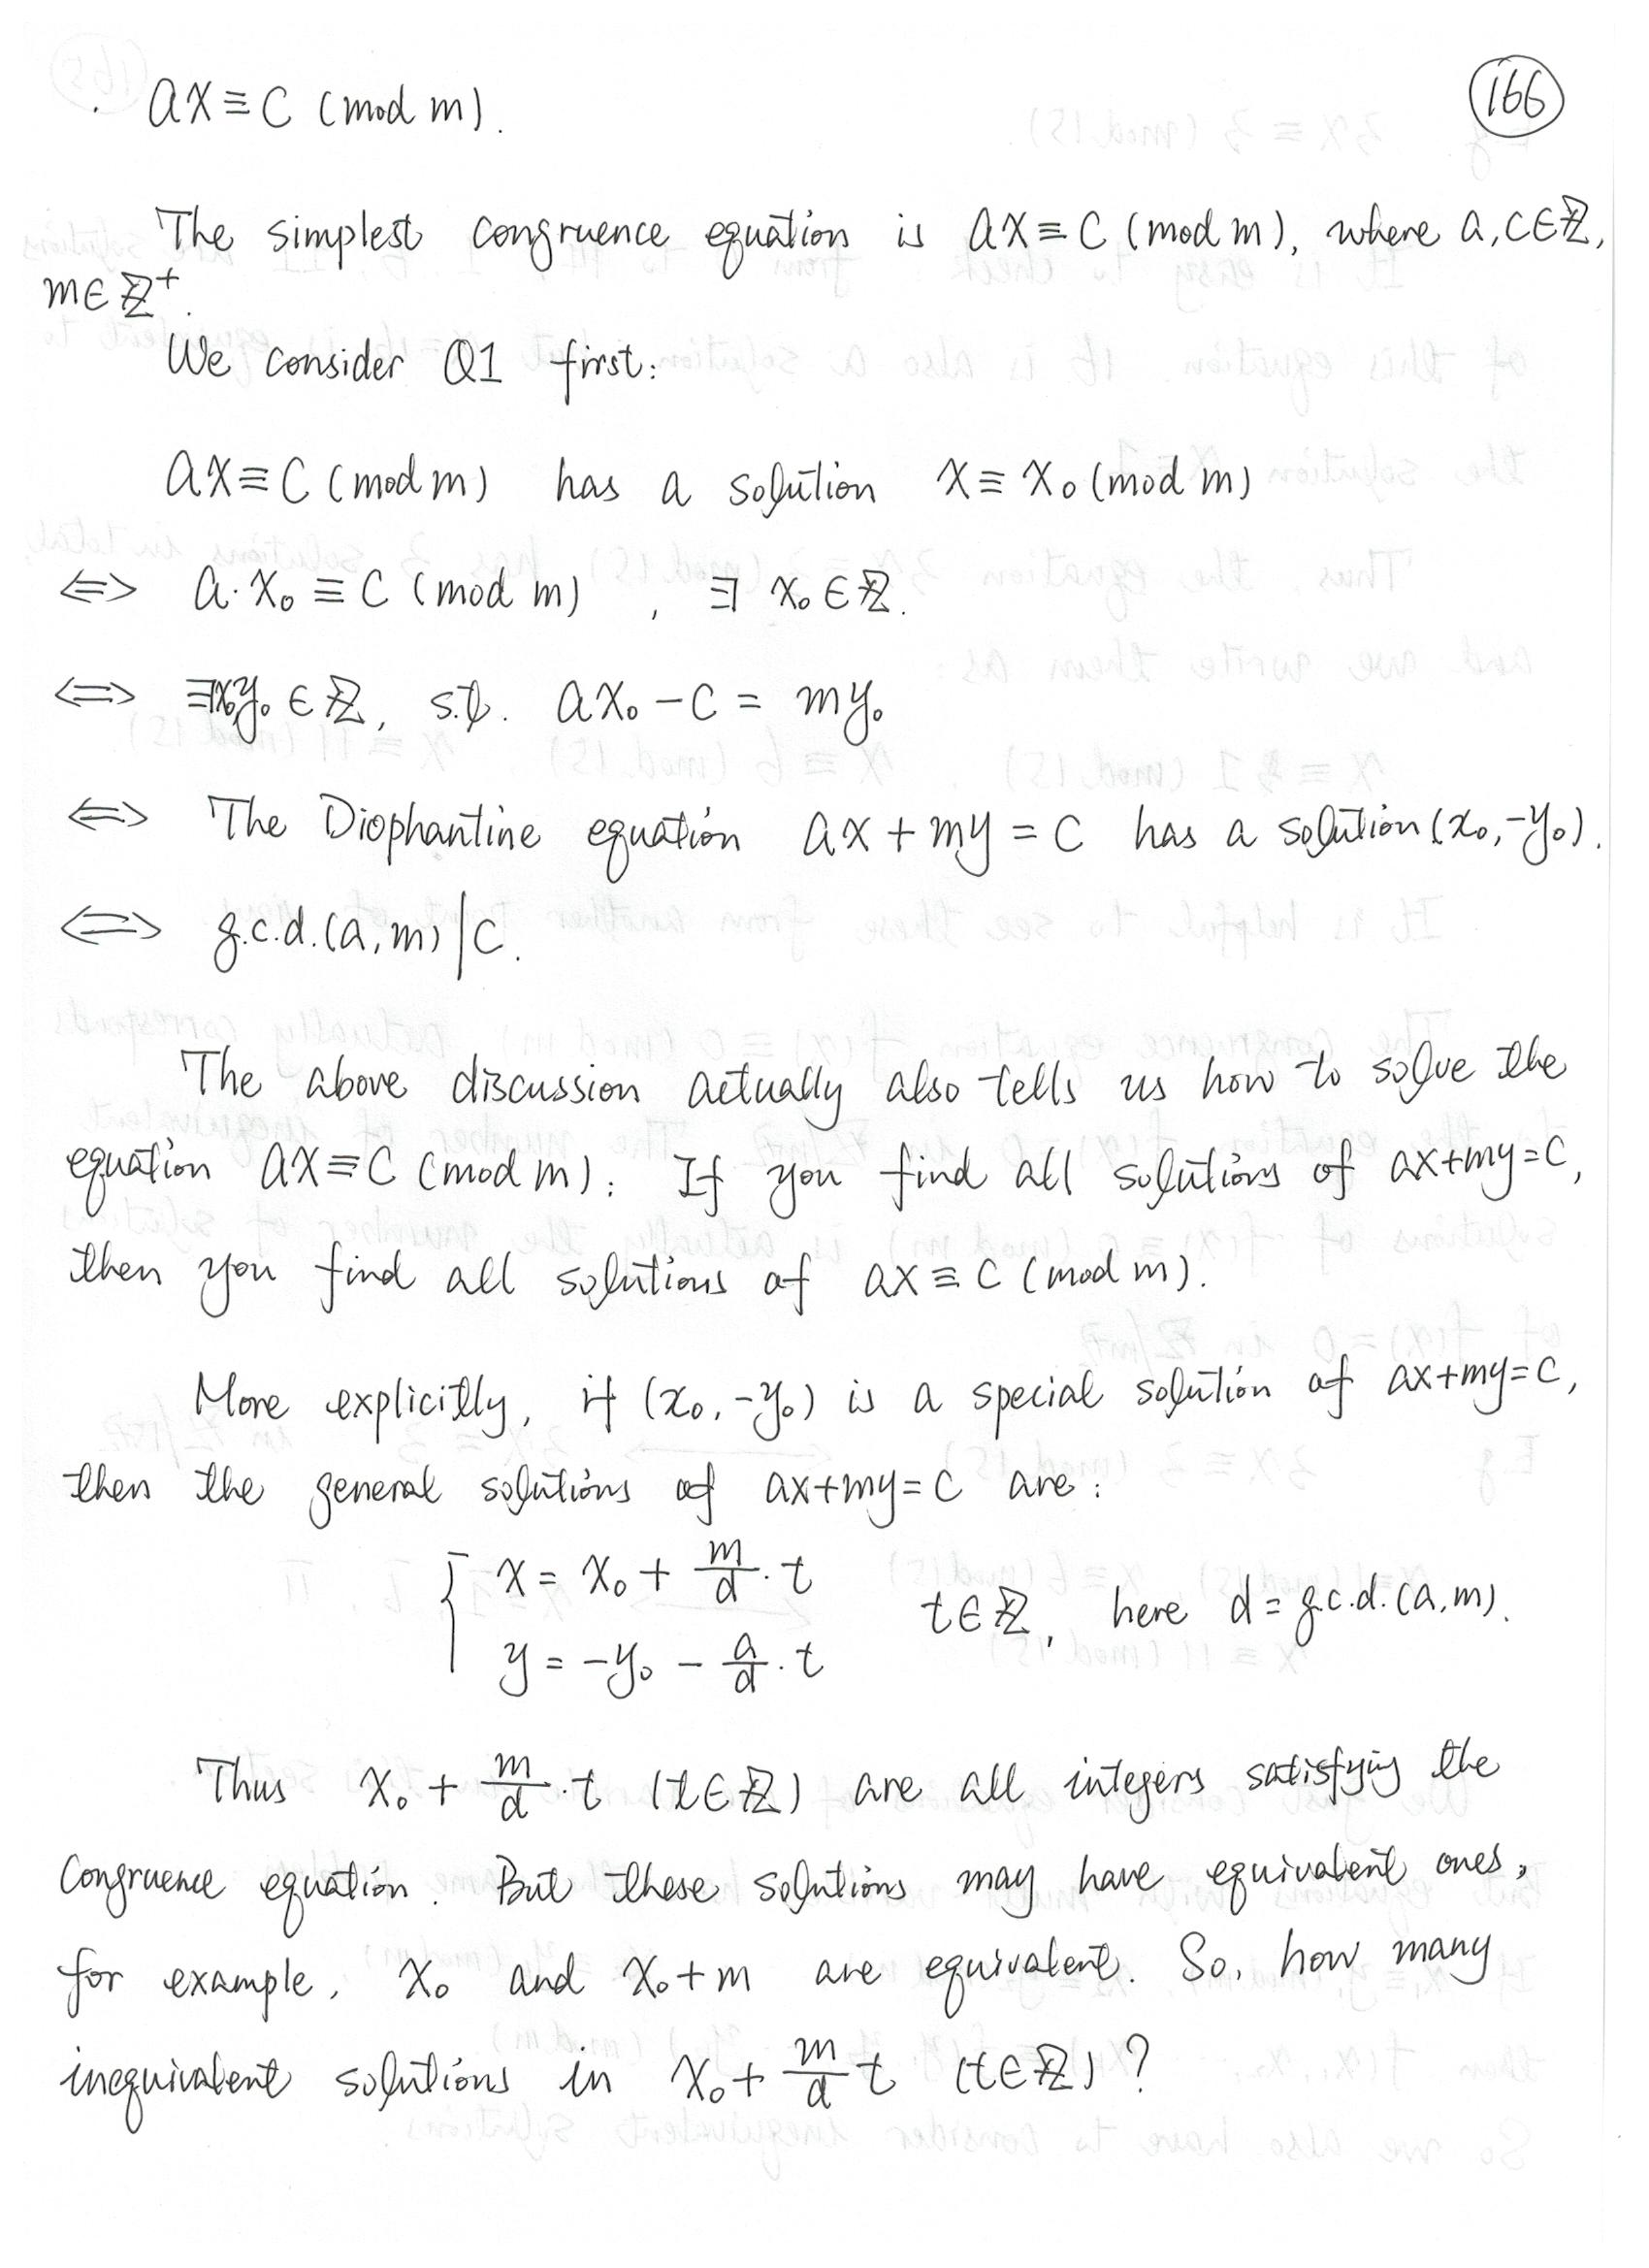 · ax ≡ c (mod m).
166
The simplest congruence equation is ax ≡ c (mod m), where a, c ∈ ℤ,
m ∈ ℤ⁺.
We consider Q1 first:
ax ≡ c (mod m) has a solution x ≡ x₀ (mod m)
⟺ a·x₀ ≡ c (mod m), ∃ x₀ ∈ ℤ.
⟺ ∃ x₀, y₀ ∈ ℤ, s.t. ax₀ − c = my₀
⟺ The Diophantine equation ax + my = c has a solution (x₀, −y₀).
⟺ g.c.d.(a, m) | c.
The above discussion actually also tells us how to solve the
equation ax ≡ c (mod m): If you find all solutions of ax+my=c,
then you find all solutions of ax ≡ c (mod m).
More explicitly, if (x₀, −y₀) is a special solution of ax+my=c,
then the general solutions of ax+my=c are:
{ x = x₀ + m/d · t
y = −y₀ − a/d · t
t ∈ ℤ, here d = g.c.d.(a, m).
Thus x₀ + m/d · t (t ∈ ℤ) are all integers satisfying the
congruence equation. But these solutions may have equivalent ones,
for example, x₀ and x₀+m are equivalent. So, how many
inequivalent solutions in x₀ + m/d t (t ∈ ℤ)?